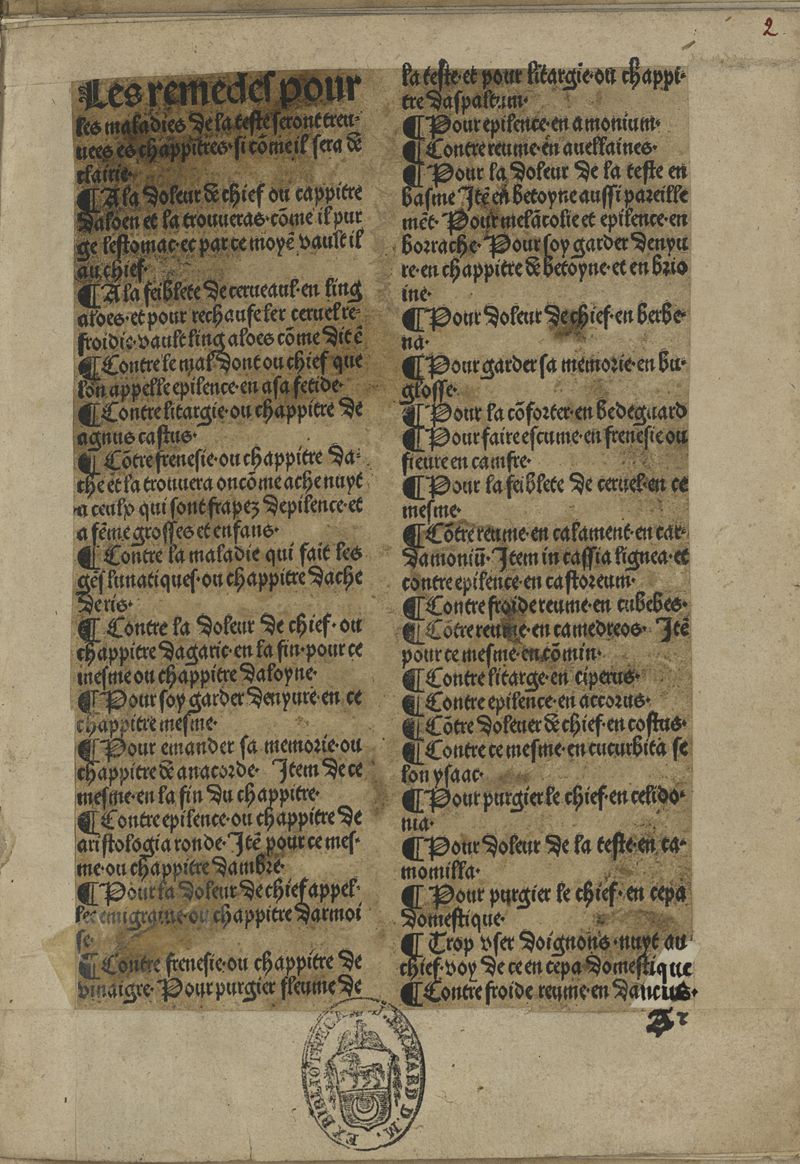 2
Les remedes pour
les maladies de la teste seront treu-
uees es chappitres·si cõme il sera de
clairie·
¶ A la doleur de chief ou cappitre
daloen et la trouueras·cõme il pur
ge lestomac·et par ce moyẽ vault il
au chief·
¶ A la feiblete de cerueaul·en ling
aloes·et pour rechaufeler ceruel re-
froidie·vault ling aloes cõme dit ẽ
¶ Contre le mal dont ou chief que
lon appelle epilence·en asa fetide·
¶ Contre litargie·ou chappitre de
agnus castus·
¶ Cõtre frenesie·ou chappitre da-
che et la trouuera on cõme ache nuyt
a ceulx qui sont frapez depilence·et
a fẽme grosses et enfans·
¶ Contre la maladie qui fait les
gẽs lunatiques·ou chappitre dache
deris·
¶ Contre la doleur de chief·ou
chappitre dagaric·en la fin·pour ce
mesme ou chappitre daloyne·
¶ Pour soy garder denyure·en ce
chappitre mesme·
¶ Pour emander sa memorie·ou
chappitre de anacorde· Item de ce
mesme·en la fin du chappitre·
¶ Contre epilence·ou chappitre de
aristologia ronde·Itẽ pour ce mes-
me·ou chappitre dambre·
¶ Pour la doleur de chief appel-
lee emigraine·ou chappitre darmoi
se·
¶ Contre frenesie·ou chappitre de
vinaigre·Pour purgier fleume de
la teste·et pour litargie·ou chappi-
tre daspaltum·
¶ Pour epilence·en amonium·
¶ Contre reume·en auellaines·
¶ Pour la doleur de la teste en
basme Itẽ en betoyne aussi pareille
mẽt· Pour melãcolie et epilence·en
borrache· Pour soy garder denyu
re·en chappitre de betoyne·et en brio
ine·
¶ Pour doleur de chief·en berbe-
na·
¶ Pour garder sa memorie·en bu-
glosse·
¶ Pour la cõforter·en bedeguard
¶ Pour faire escume·en frenesie ou
fieure en camfre·
¶ Pour la feiblete de ceruel·en ce
mesme·
¶ Cõtre reume·en calament·en car-
damoniũ· Item in cassia lignea·et
contre epilence·en castoreum·
¶ Contre froide reume·en cubebes·
¶ Cõtre reume·en camedreos· Itẽ
pour ce mesme·en cõmin·
¶ Contre litarge·en ciperus·
¶ Contre epilence·en accorus·
¶ Cõtre doleuer de chief·en costus·
¶ Contre ce mesme·en cucurbita se
lon ysaac·
¶ Pour purgier le chief·en celido-
nia·
¶ Pour doleur de la teste·en ca-
momilla·
¶ Pour purgier le chief·en cepa
domestique·
¶ Trop vser doignons·nuyt au
chief·voy de ce en cepa domestique
¶ Contre froide reume·en daucus·
EX BIBLIOTHECA D. M.